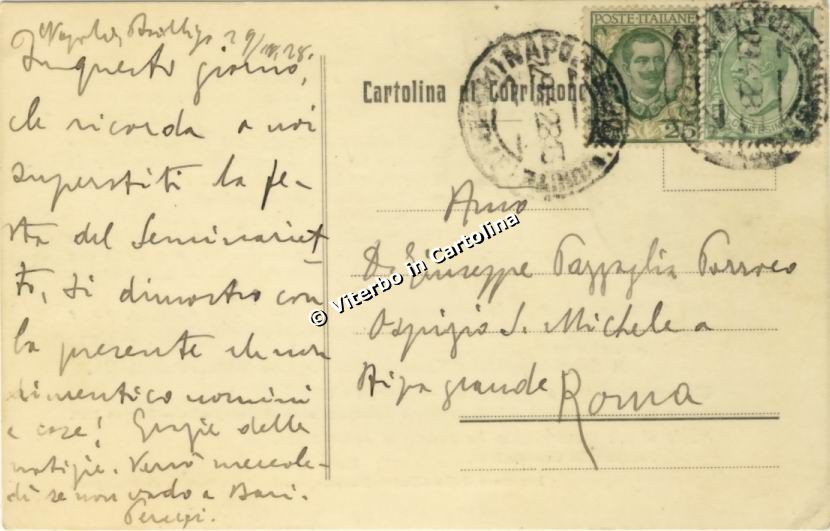 Napoli, 29/ 28.
In questo giorno,
che ricorda a noi
superstiti la fe-
sta del Seminariet-
to, ti dimostro con
la presente che non
dimentico uomini
e cose! Grazie delle
notizie. Verrò mercole-
dì se non vado a Bari.
Cartolina di Corrispond
POSTE·ITALIANE
25
NAPOLI
© Viterbo in Cartolina
D. Giuseppe Pazzaglia Parroco
Ospizio S. Michele a
Ripa grande Roma